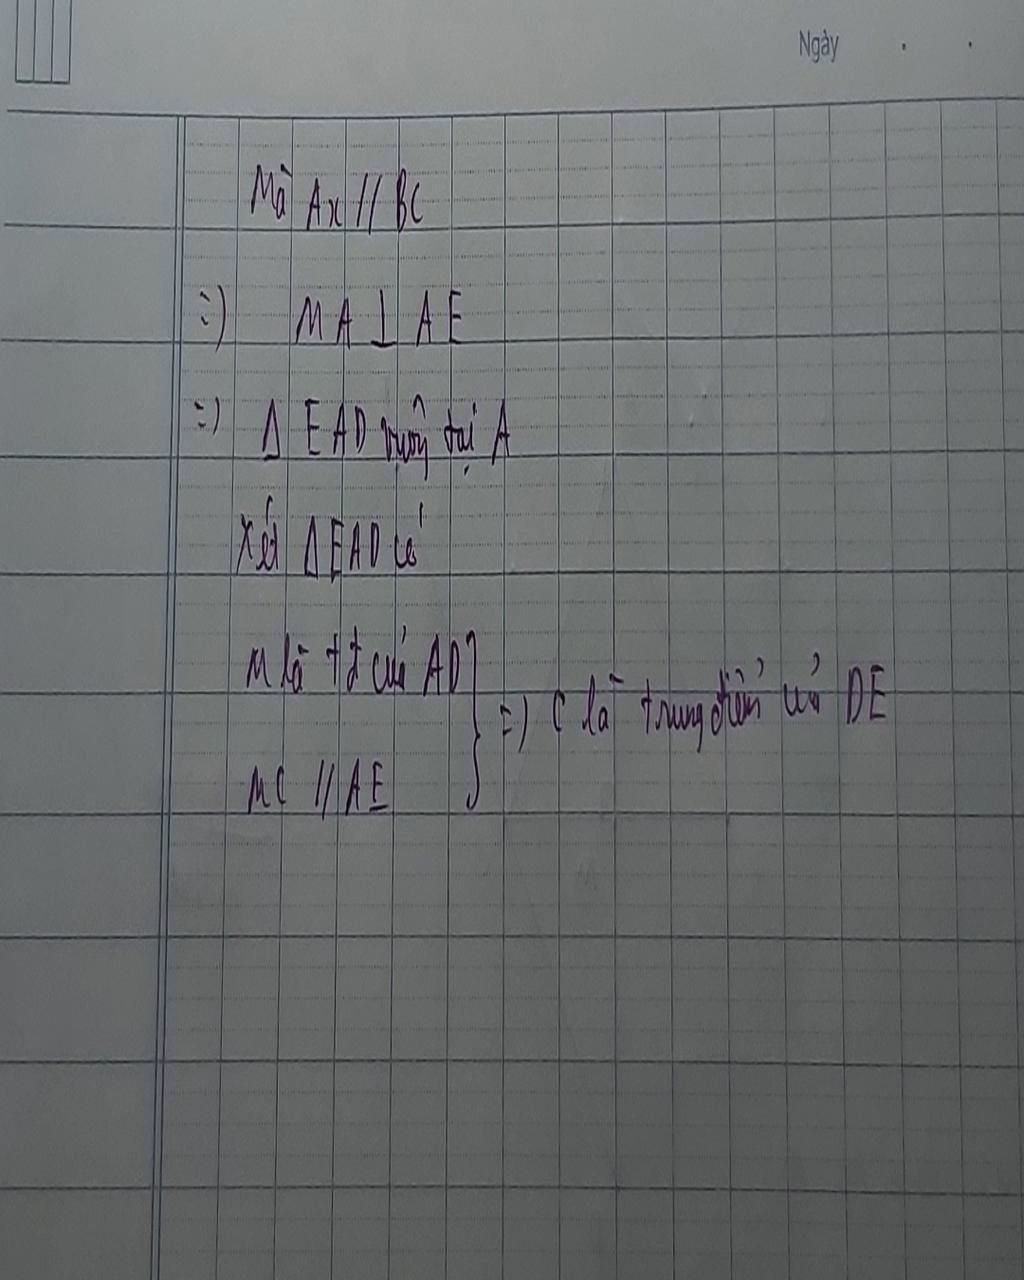 Ngày . .
Mà Ax // BC
=) MA ⊥ AE
=) Δ EAD vuông tại A
Xét ΔEAD có
M là tđ của AD
=) C là trung điểm của DE
MC // AE